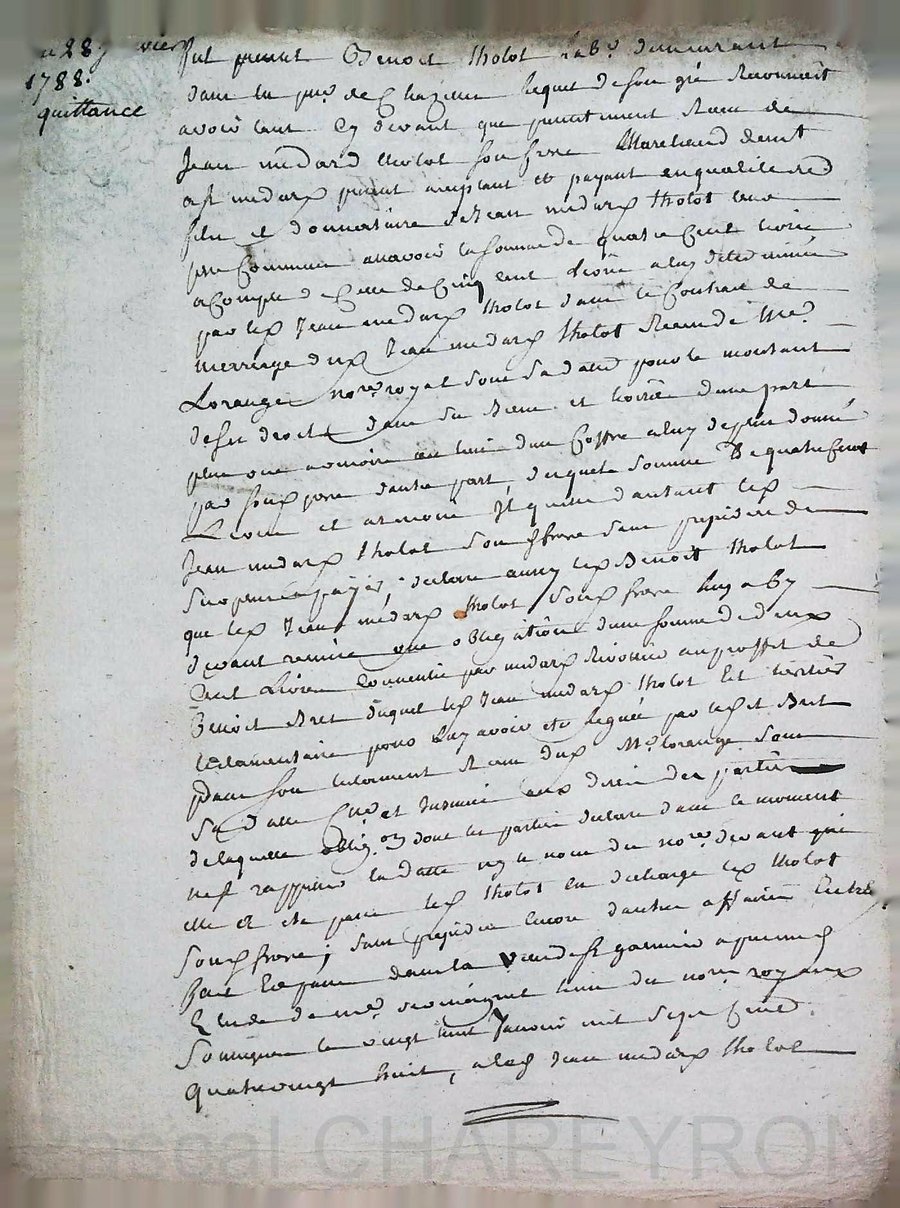 28 janvier
1788.
quittance
fut présent Benoit tholot lab.r demeurant
dans la par. de Chazelles lequel de son gré Reconnoit
avoir tant cy devant que presentement Receu de
Jean médard tholot son frere Marchand demt
a st medard présent acceptant et payant en qualité de
fils et donnataire de Jean médard tholot leur
pere Commun a savoir la somme de quatre Cent livres
a Compte de Celle de Cinq Cent livres a luy determinée
par led Jean médard tholot dans le Contrat de
merriage dud Jean medard tholot Receu de Me
Lorange no.re royal sous sa datte pour le montant
de ses droits dans ses Biens et hoirie d'une part
plus une armoire au lieu d'un Coffre a luy de plus donné
par sond pere d'autre part, de laquelle somme de quatre Cent
Livres et armoire Il quitte d'autant led
Jean medard tholot son frere sans prejudice de
payer ; declare aussy led Benoit tholot
que led Jean médard tholot sond frere luy a cy
devant remis une obligation d'une somme de deux
Cent Livres Consentie par medard au proffit de
Benoit Bret duquel led Jean medard tholot est heritier
testamentaire pour luy avoir eté leguée par led st Bret
dans son testament Receu dud Me lorange sous
sa datte Con.lé et Insinué aux desirs des parties
de laquelle oblig.on dont les parties declare dans le moment
ne s rappeller la datte ny le nom du no.re devant qui
elle a eté passé led tholot en decharge led tholot
sond frere ; sans prejudice encore d'autres affaires Entr'eux
fait et passé dans la de st galmier apres midy
Etude de Me l'un des no.res royaux
Soussignés le vingt huit Janvier mil sept Cent
quatrevingt huit, a led Jean medard tholot
Pascal CHAREYRON